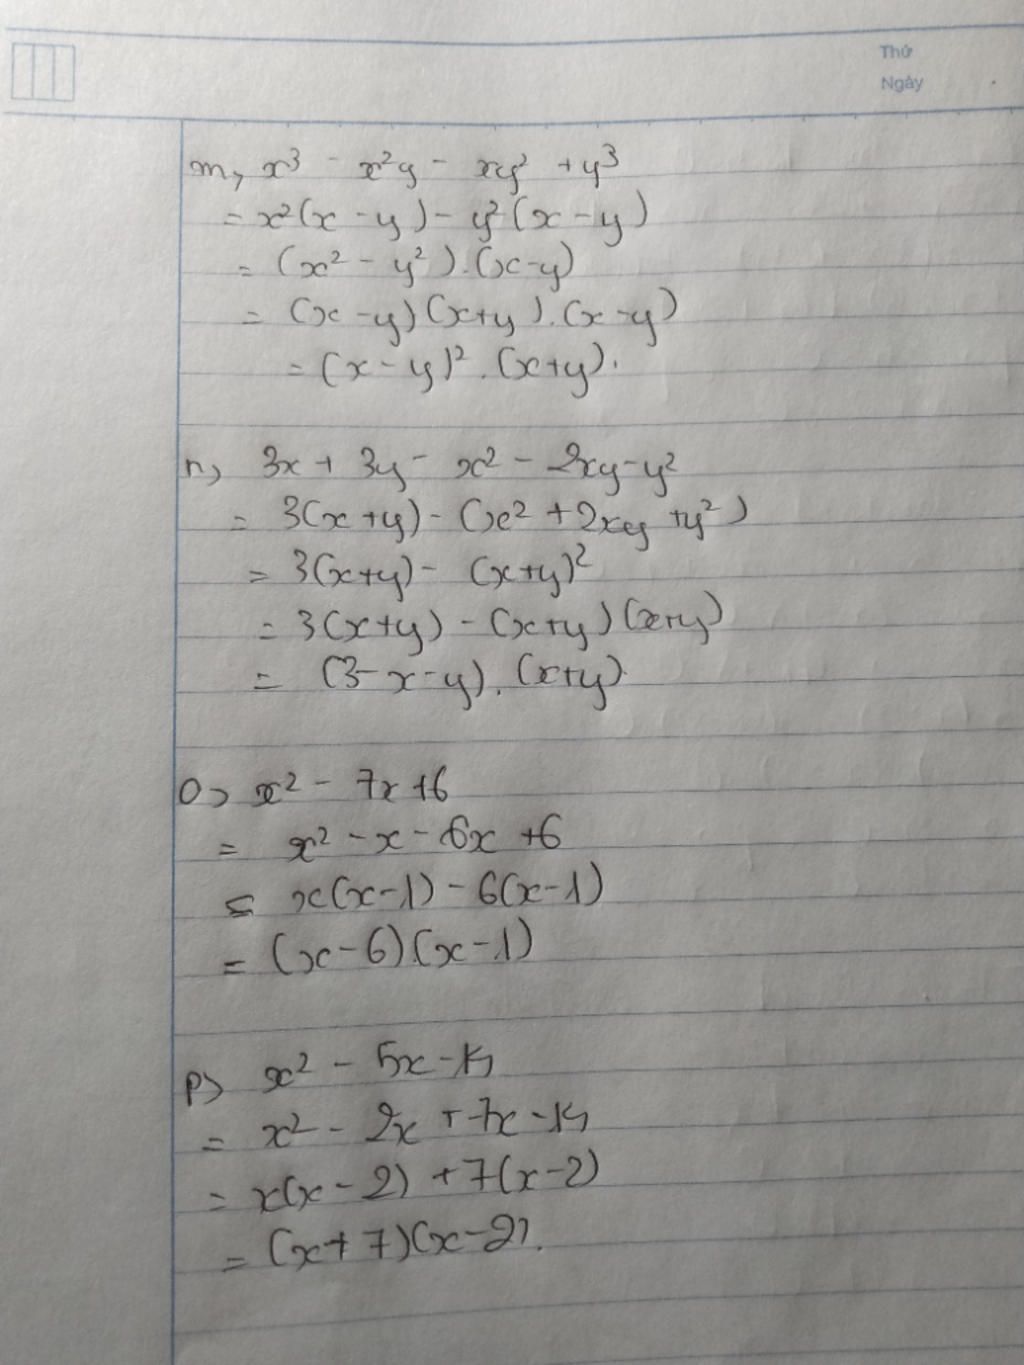 Thứ
Ngày
m, x³ - x²y - xy² + y³
= x²(x - y) - y²(x - y)
= (x² - y²).(x-y)
= (x - y)(x+y).(x-y)
= (x - y)².(x+y).
n, 3x + 3y - x² - 2xy - y²
= 3(x+y) - (x² + 2xy + y²)
= 3(x+y) - (x+y)²
= 3(x+y) - (x+y)(x+y)
= (3-x-y).(x+y).
o, x² - 7x + 6
= x² - x - 6x + 6
= x(x-1) - 6(x-1)
= (x-6)(x-1)
p, x² - 5x - 14
= x² - 2x + 7x - 14
= x(x - 2) + 7(x-2)
= (x+7)(x-2).